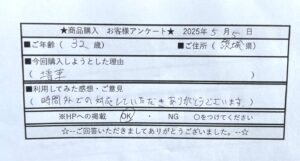 ★商品購入 お客様アンケート★ 2025年5月5日
■ご年齢( 32 歳) ■ご住所( 茨城県 )
■今回購入しようとした理由
( 堵車 )
■利用してみた感想・ご意見
( 時間外での対応していただきありがとうございます )
※HPへの掲載 OK ・ NG ○をつけてください
☆--ご回答いただきましてありがとうございました。--☆